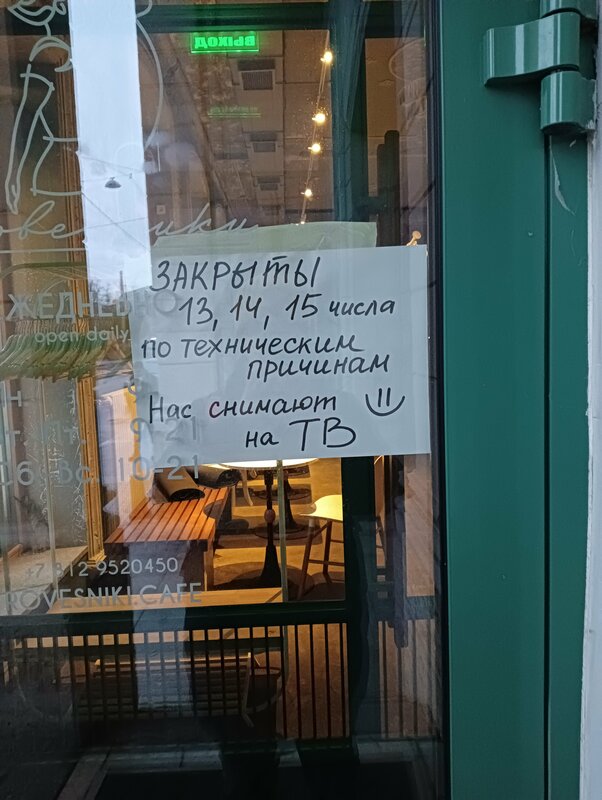 ВЫХОД
ЗАКРЫТЫ
13, 14, 15 числа
по техническим
причинам
Нас снимают
на ТВ
open daily
9-21
вс. 10-21
+7 812 9520450
ROVESNIKI.CAFE